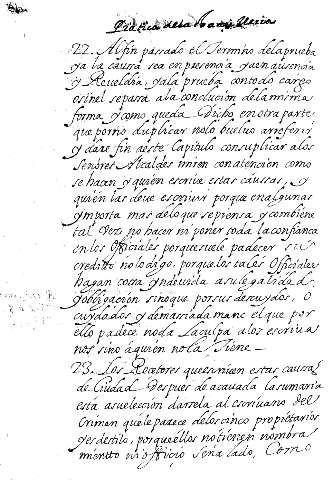 Pratica de la
22. Al fin passado el termino de la prueba
ya la caussa sea en presencia ya en ausencia
y Reveldia, y a la prueba con todo cargo
se passa a la conclucion de la misma
forma y como queda dicho, en otra parte,
que por no duplicar no lo buelvo a rreferir
y dare fin a este Capitulo con suplicar a los
señores Alcaldes miren con atencion como
se hacen y quien escrive estas caussas, y
quien las deve escrivir porque en algunas
ymporta mas de lo que se piensa y combiene
tal vez no hacer ni poner toda la confianca
en los officiales porque suele padecer su
credito no lo digo, porque los tales officiales
hagan cossa yndevida a su legalidad,
y obligacion sino que por sus descuydos, o
cuydados y demasiada mane el que por
ello padece no da la culpa a los escriva
nos sino a quien no la tiene
23. Los Rectores que escriven estas caussas
de Ciudad Despues de acavada la sumaria
esta a su eleccion darsela al escrivano del
Crimen que le parece de los cinco propietarios
y es destilo, porque ellos no tienen nombra
miento ni officio señalado, Como